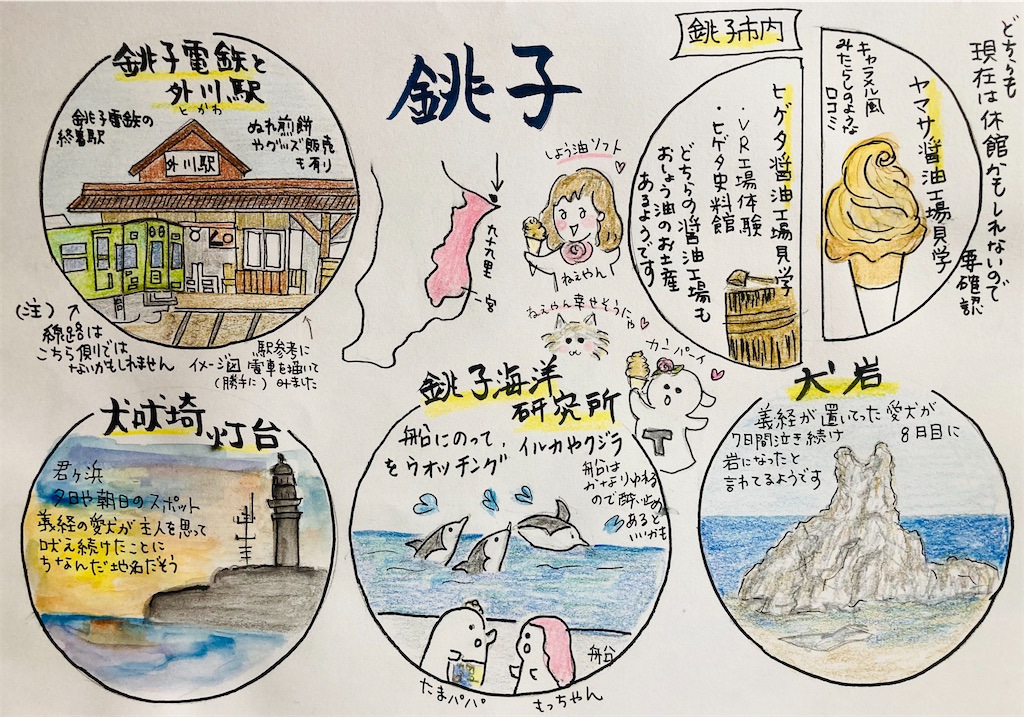 銚子
銚子電鉄と
外川駅
とかわ
銚子電鉄の
終着駅
ぬれ煎餅
やグッズ販売
も有り
外川駅
(注)
線路は
こちら側では
ないかもしれません
イメージ図
駅参考に
電車を描いて
(勝手に)みました
九十九里
一宮
しょう油ソフト
ねぇやん
ねぇやん幸せそうにゃ
カンパーイ
T
銚子市内
どちらも
現在は休館かもしれないので
要確認
ヤマサ醤油工場見学
キャラメル風
みたらしのような
口コミ
ヒゲタ醤油工場見学
・VR工場体験
・ヒゲタ史料館
どちらの醤油工場も
おしょう油のお土産
あるようです
犬吠埼
灯台
君ヶ浜
夕日や朝日のスポット
義経の愛犬が主人を思って
吠え続けたことに
ちなんだ地名だそう
銚子海洋
研究所
船にのって、イルカやクジラ
をウオッチング
船は
かなりゆれる
ので酔い止め
あると
いいかも
船
たまパパ
もっちゃん
犬岩
義経が置いてった愛犬が
7日間泣き続け
8日目に
岩になったと
言われてるようです